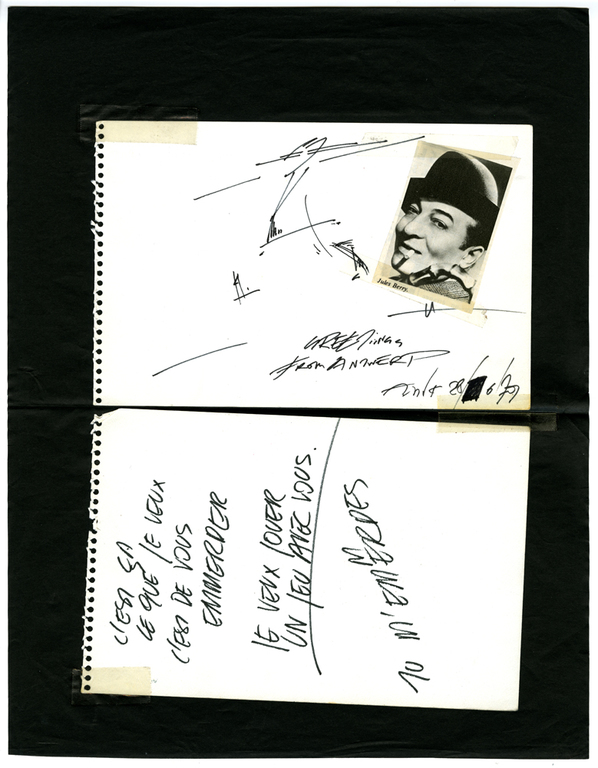 Jules Berry.
GREETINGS
FROM ANTWERP
C'EST ÇA
CE QUE JE VEUX
C'EST DE VOUS
EMMERDER
JE VEUX JOUER
UN JEU AVEC VOUS.
TU M'EMMERDES